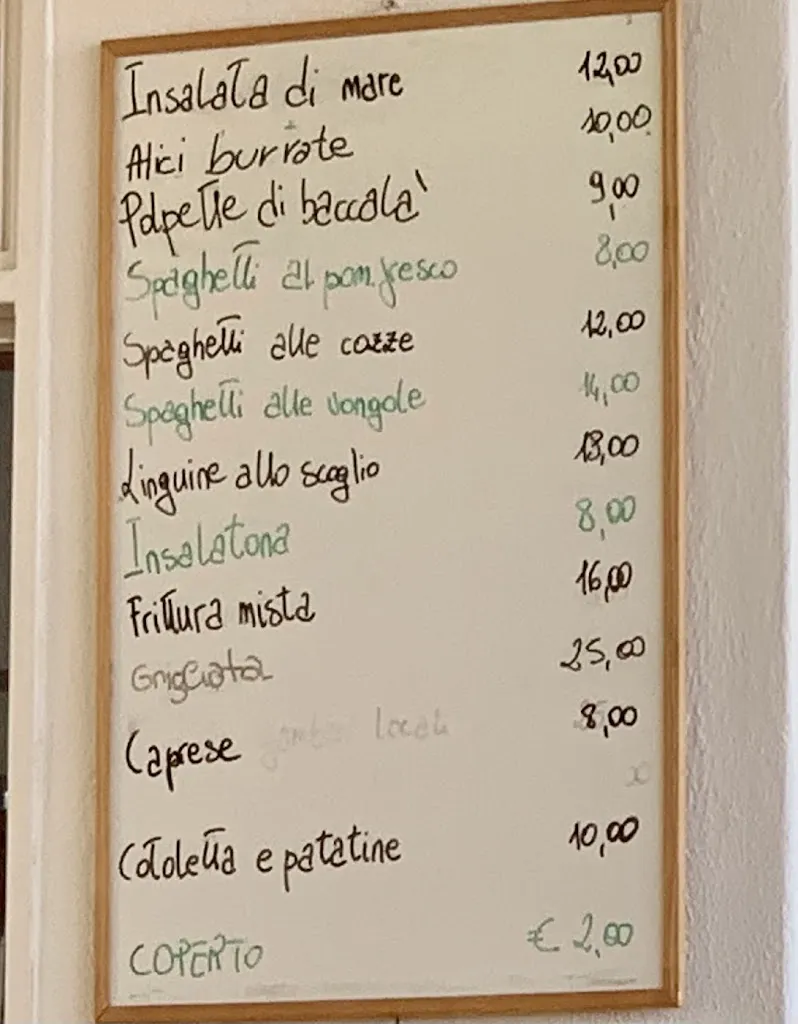 Insalata di mare 12,00
Alici burrate 10,00
Polpette di baccala' 9,00
Spaghetti al pom. fresco 8,00
Spaghetti alle cozze 12,00
Spaghetti alle vongole 14,00
Linguine allo scoglio 18,00
Insalatona 8,00
Frittura mista 16,00
Grigliata 25,00
Caprese locali 8,00
Cotoletta e patatine 10,00
COPERTO € 2,00